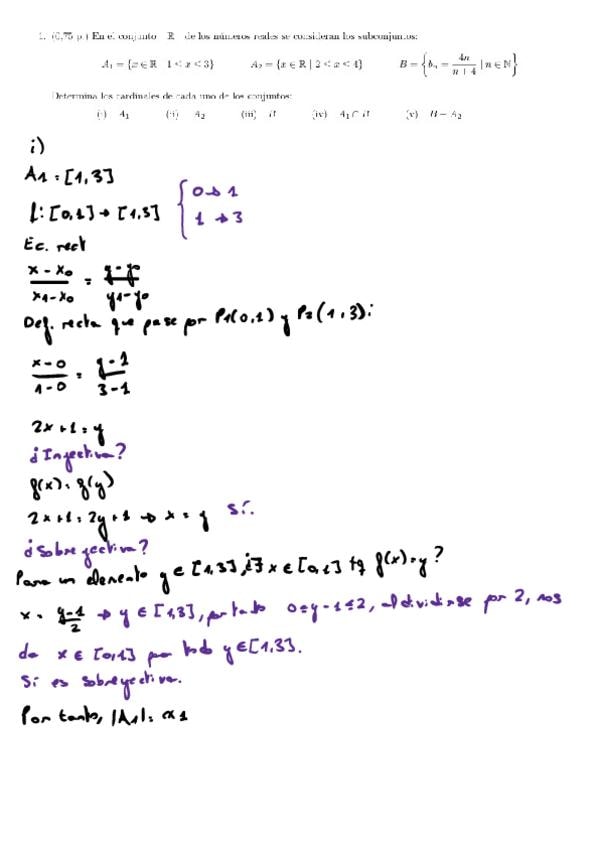 1. (0,75 p.) En el conjunto ℝ de los números reales se consideran los subconjuntos:
A₁ = {x ∈ ℝ 1 < x < 3} A₂ = {x ∈ ℝ | 2 < x < 4} B = {bₙ = 4n/(n + 4) | n ∈ ℕ}
Determina los cardinales de cada uno de los conjuntos:
(i) A₁ (ii) A₂ (iii) B (iv) A₁ ∩ B (v) B − A₂
i)
A1 = [1,3]
f: [0,1] → [1,3] { 0 → 1
1 → 3
Ec. rect
(x - x₀)/(x1 - x₀) = (y - y₀)/(y1 - y₀)
Def. recta que pase por P1(0,1) y P2(1,3):
(x - 0)/(1 - 0) = (y - 1)/(3 - 1)
2x + 1 = y
¿Inyectiva?
f(x) = f(y)
2x + 1 = 2y + 1 → x = y Sí.
¿Sobreyectiva?
Para un elemento y ∈ [1,3], ¿∃ x ∈ [0,1] tq f(x) = y?
x = (y - 1)/2 → y ∈ [1,3], por tanto 0 ≤ y - 1 ≤ 2, al dividirse por 2, nos
da x ∈ [0,1] para todo y ∈ [1,3].
Sí es sobreyectiva.
Por tanto, |A1| = α1